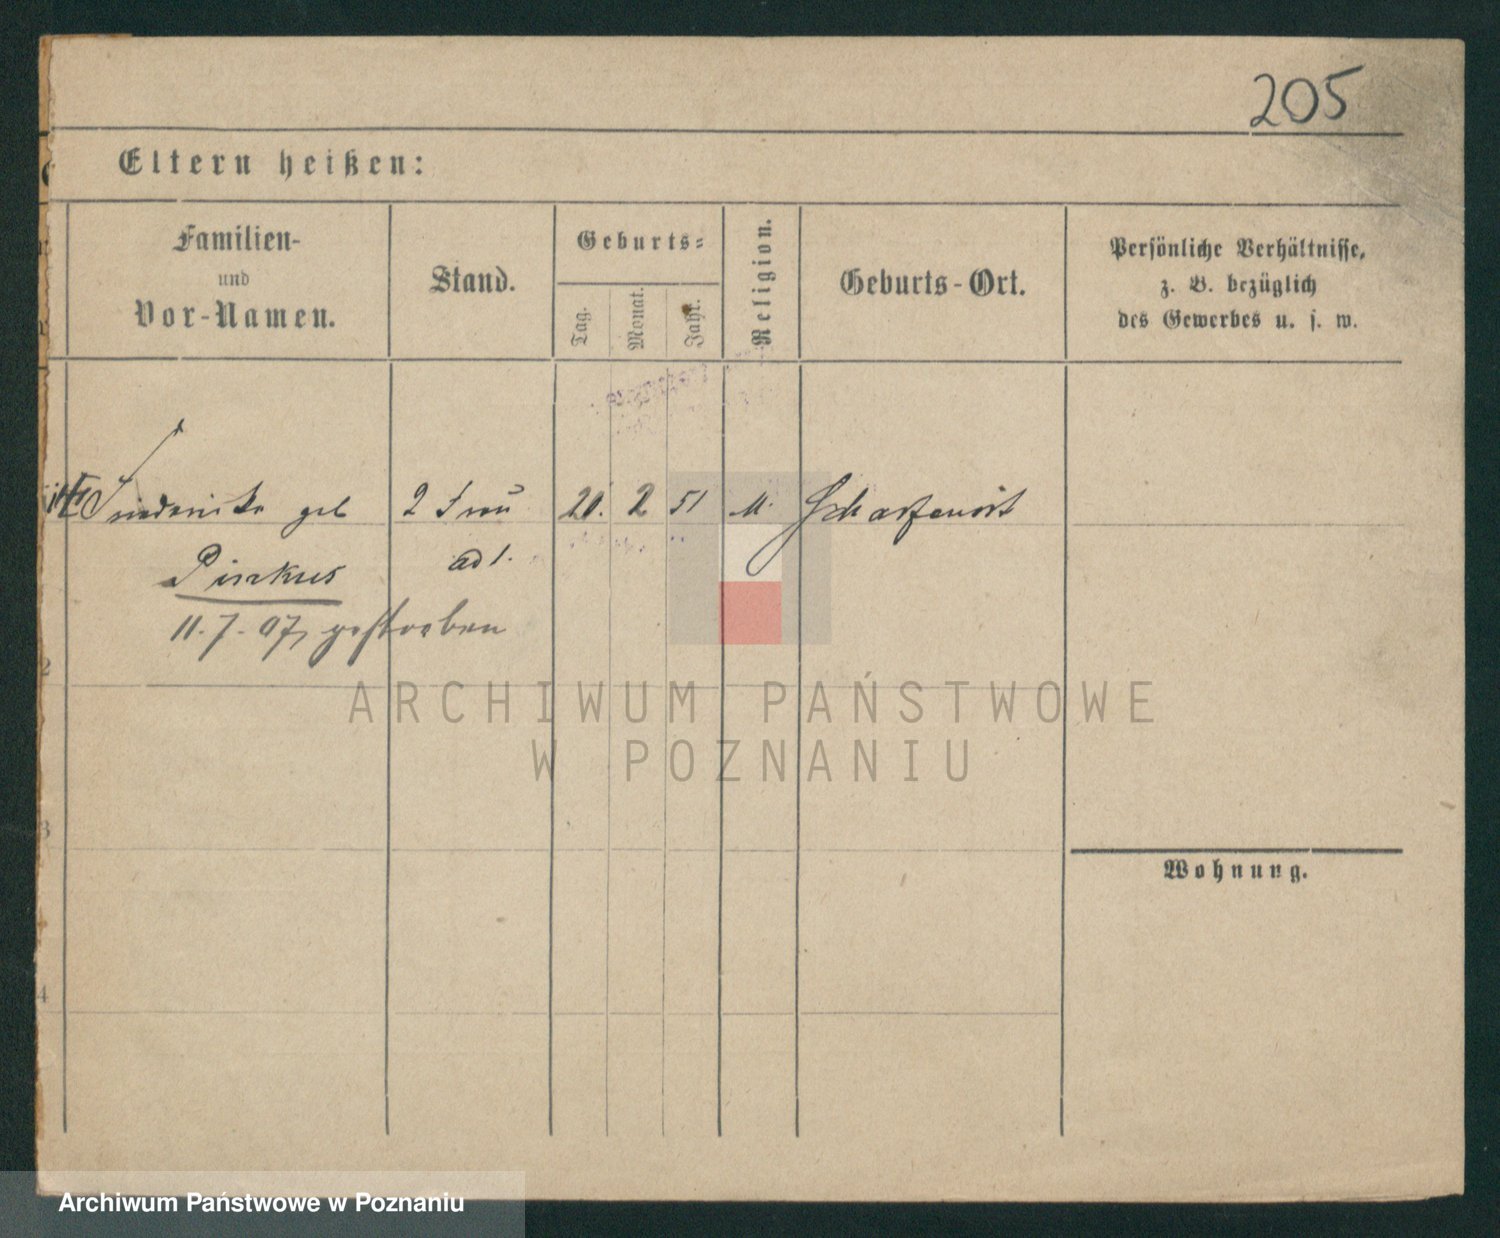 205
Eltern heißen:
Familien-
und
Vor-Namen.
Stand.
Geburts-
Tag.
Monat.
Jahr.
Religion.
Geburts-Ort.
Persönliche Verhältnisse,
z. B. bezüglich
des Gewerbes u. s. w.
Friederike geb 2 Frau 20. 2 51 M. Scharfenort
Pinkus ad 1.
11.7.07, gestorben
2
3
4
Wohnung.
ARCHIWUM PAŃSTWOWE
W POZNANIU
Archiwum Państwowe w Poznaniu